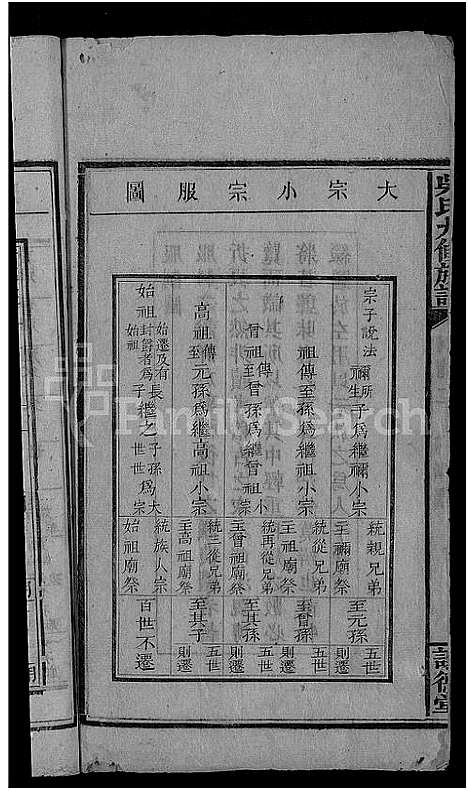 吳氏九修族譜
大宗小宗服圖
宗子說法
禰所生子為繼禰小宗
統親兄弟
主禰廟祭
至元孫
五世則遷
祖傳至孫為繼祖小宗
統從兄弟
主祖廟祭
至曾孫
五世則遷
曾祖傳至曾孫為繼曾祖小宗
統再從兄弟
主曾祖廟祭
至其孫
五世則遷
高祖傳至元孫為繼高祖小宗
統三從兄弟
主高祖廟祭
至其子
五世則遷
始祖始遷及有封爵者為始祖長子繼之子孫世世為大宗
統族人宗
始祖廟祭
百世不遷
FamilySearch